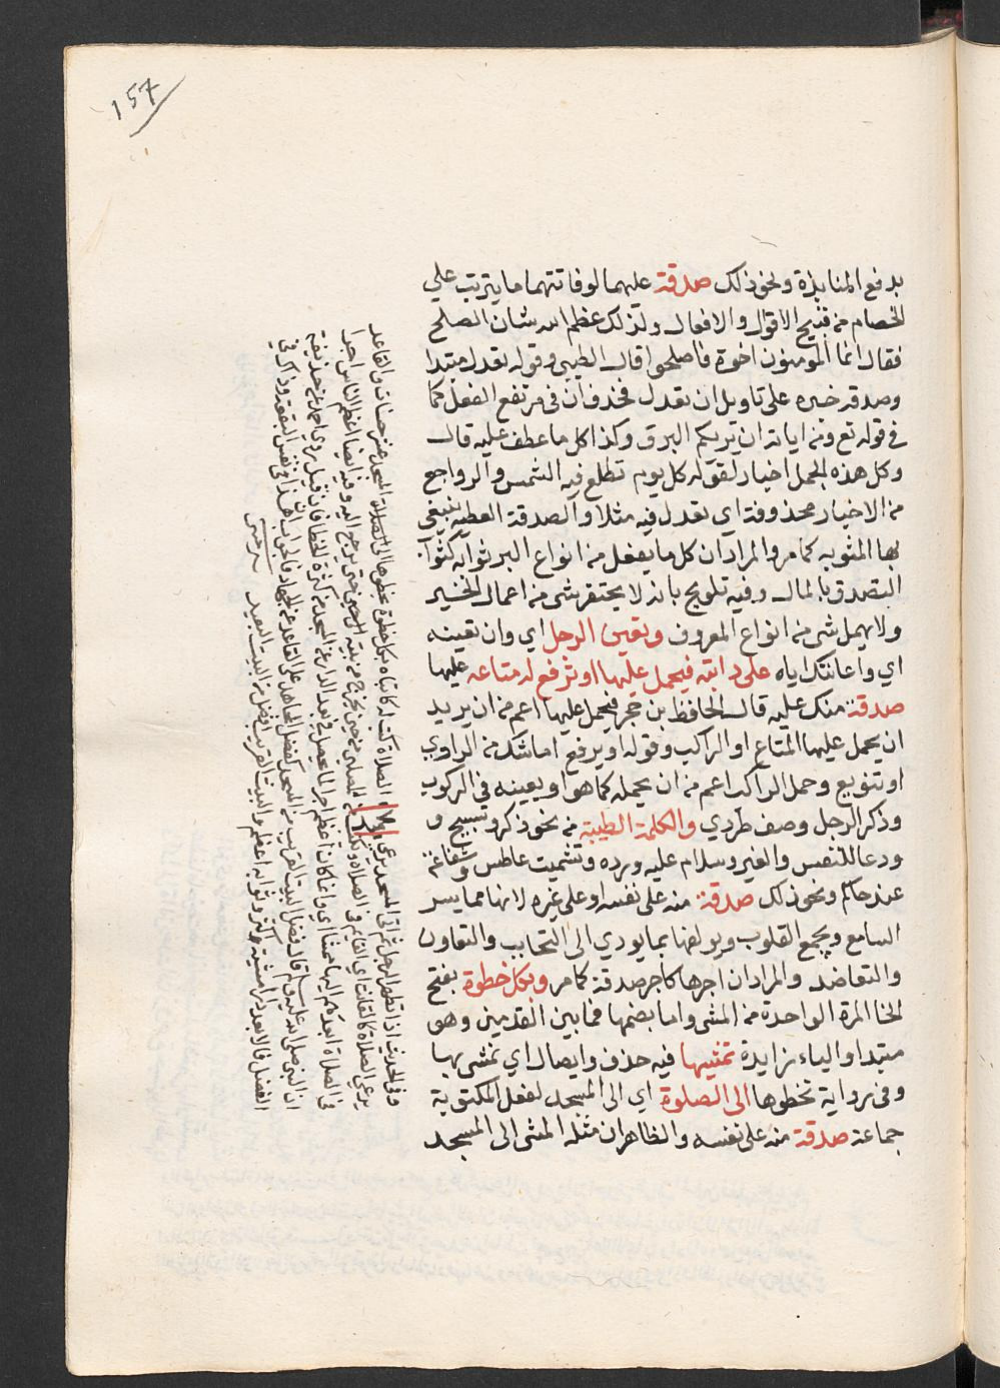 157
بدفع المنابذة ونحو ذلك صدقة عليهما لوقايتهما ما يترتب علي
الخصام من قبيح الاقوال والافعال ولذلك عظم الله شان الصلح
فقال انما المومنون اخوة فاصلحوا قال الطيبي وقوله تعدل مبتدا
وصدقة خبره على تاويل ان تعدل فحذف ان فيرتفع الفعل كما
في قوله تع ومن اياته ان يريكم البرق وكذا كل ما عطف عليه قال
وكل هذه الجمل اخبار لقوله كل يوم تطلع فيه الشمس والرواجع
من الاخبار محذوفة اي تعدل فيه مثلا والصدقة العطية يبتغي
بها المثوبه كما مر والمراد ان كل ما يفعل من انواع البر ثوابه كثواب
التصدق بالمال وفيه تلويح بانه لا يحتقر شي من اعمال الخير
ولا يهمل شي من انواع المعروف وتعين الرجل اي وان تعينه
اي واعانتك اياه على دابته فيحمل عليها او ترفع له متاعه عليها
صدقة منك عليه قال الحافظ بن حجر فيحمل عليها اعم من ان يريد
ان يحمل عليها المتاع او الراكب وقوله او يرفع اما شك من الراوي
او تنويع وحمل الراكب اعم من ان يحمله كما هو او يعينه في الركوب
وذكر الرجل وصف طردي والكلمة الطيبة من نحو ذكر وتسبيح و
ودعا للنفس والغير وسلام عليه ورده وتشميت عاطس وشفاعة
عند حاكم ونحو ذلك صدقة منه على نفسه او على غيره لانها مما يسر
السامع ويجمع القلوب ويولفها بما يودي الى التحابب والتعاون
والتعاضد والمراد ان اجرها كاجر صدقة كما مر وبكل خطوة بفتح
الخا المرة الواحدة من المشي واما بضمها فما بين القدمين وهو
مبتدا والباء زايدة تمشيها فيه حذف وايصال اي تمشي بها
وفي رواية تخطوها الى الصلوة اي الى المسجد لفعل المكتوبة
جماعة صدقة منه على نفسه والظاهر ان مثله المشي الى المسجد
وفي الحديث اذا تطهر الرجل ثم اتى المسجد يرعى الصلاة كتب له كاتباه بكل خطوة يخطوها الى المسجد عشر حسنات والقاعد
يرعي الصلاة كالقانت اي القايم في الصلاة ويكتب من المصلين من حين يخرج من بيته حتى يرجع اليه وفيه ايضا اعظم الناس اجرا
في الصلاة ابعدهم اليها ممشا اي وانما كان اعظم اجرا لما يحصل في بعد الدار عن المسجد من كثرة الخطا فان قيل روي احمد عن حذيفة
ان النبي صلى الله عليه وسلم قال فضل البيت القريب من المسجد كفضل المجاهد على القاعد عن الجهاد فالجواب ان هذا في نفس البقعة وذاك في
الفضل فالابعد دارا مشيته اكثر وثوابه اعظم والبيت القريب افضل من البيت البعيد